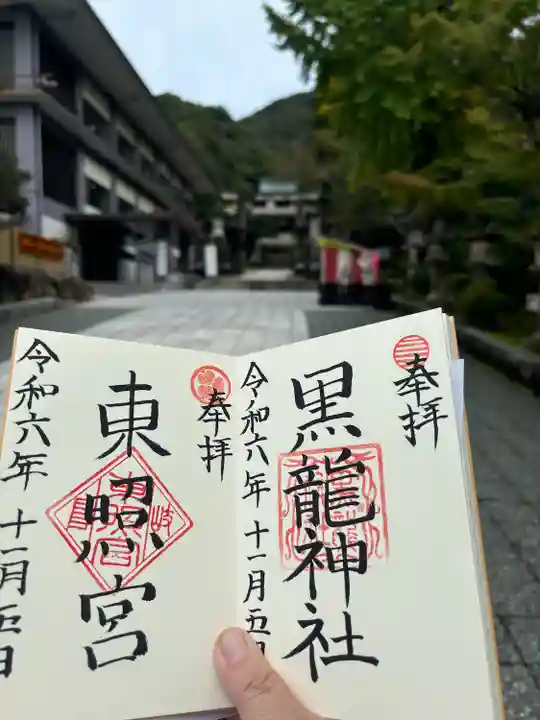 奉拝
黒龍神社
令和六年 十一月五日
奉拝
東照宮
令和六年 十一月五日